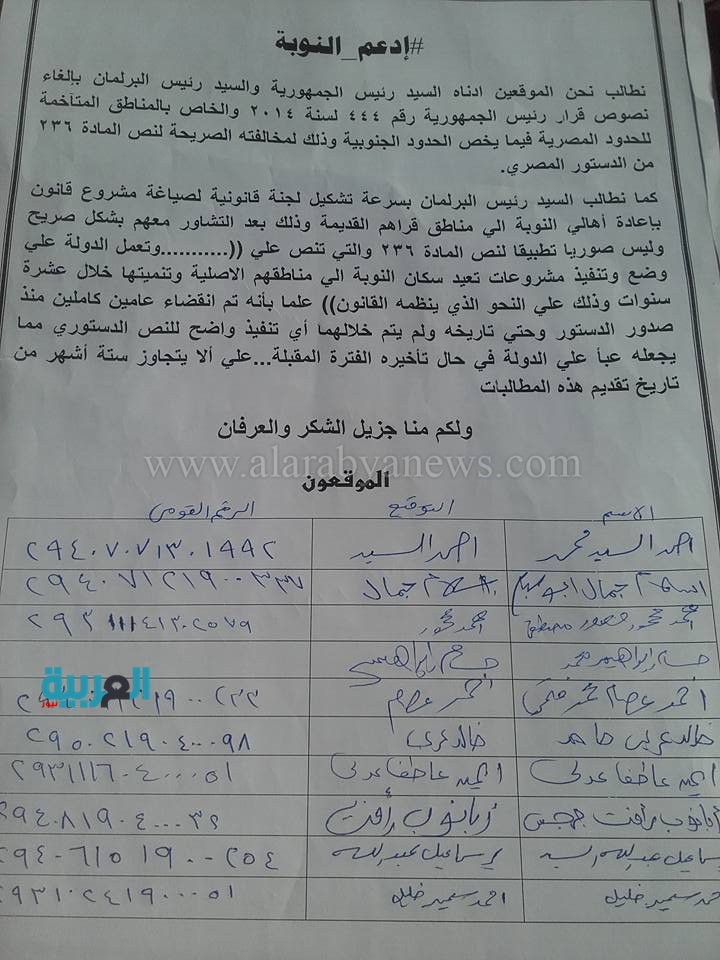 #إدعم_النوبة
نطالب نحن الموقعين ادناه السيد رئيس الجمهورية والسيد رئيس البرلمان بإلغاء
نصوص قرار رئيس الجمهورية رقم ٤٤٤ لسنة ٢٠١٤ والخاص بالمناطق المتآخمة
للحدود المصرية فيما يخص الحدود الجنوبية وذلك لمخالفته الصريحة لنص المادة ٢٣٦
من الدستور المصري.
كما نطالب السيد رئيس البرلمان بسرعة تشكيل لجنة قانونية لصياغة مشروع قانون
بإعادة أهالي النوبة الي مناطق قراهم القديمة وذلك بعد التشاور معهم بشكل صريح
وليس صوريا تطبيقا لنص المادة ٢٣٦ والتي تنص علي ((...........وتعمل الدولة علي
وضع وتنفيذ مشروعات تعيد سكان النوبة الي مناطقهم الاصلية وتنميتها خلال عشرة
سنوات وذلك علي النحو الذي ينظمه القانون)) علما بأنه تم انقضاء عامين كاملين منذ
صدور الدستور وحتي تاريخه ولم يتم خلالهما أي تنفيذ واضح للنص الدستوري مما
يجعله عبأ علي الدولة في حال تأخيره الفترة المقبلة...علي ألا يتجاوز ستة أشهر من
تاريخ تقديم هذه المطالبات
ولكم منا جزيل الشكر والعرفان
www.alarabyanews.com
الموقعون
الاسم التوقيع الرقم القومى
احمد السيد محمد احمد السيد ٢٩٤٠٧٠٧١٣٠١٩٩٢
اسلام جمال ابو سليم اسلام جمال ٢٩٤٠٧١٢١٩٠٠٣٣٧
محمد محمود منصور مصطفى محمد محمود
حسام ابراهيم محمد حسام ابراهيم
العربية نيوز
احمد عصام محمد فتحى احمد عصام
خالد عربى حامد خالد عربى ٢٩٥٠٢١٩٠٤٠٠٠٩٨
ايمن عاطف عدلى ايمن عاطف عدلى ٢٩٣١١١٦٠٤٠٠٠٥١
أبانوب رأفت جرجس أبانوب رأفت ٢٩٤٠٨١٩٠٤٠٠٠٣٢
إسماعيل عبدالله السيد إسماعيل عبدالله ٢٩٤٠٦١٥١٩٠٠٢٥٤
احمد سمير خليل احمد سمير خليل ٢٩٣١٠٢٤١٩٠٠٠٥١